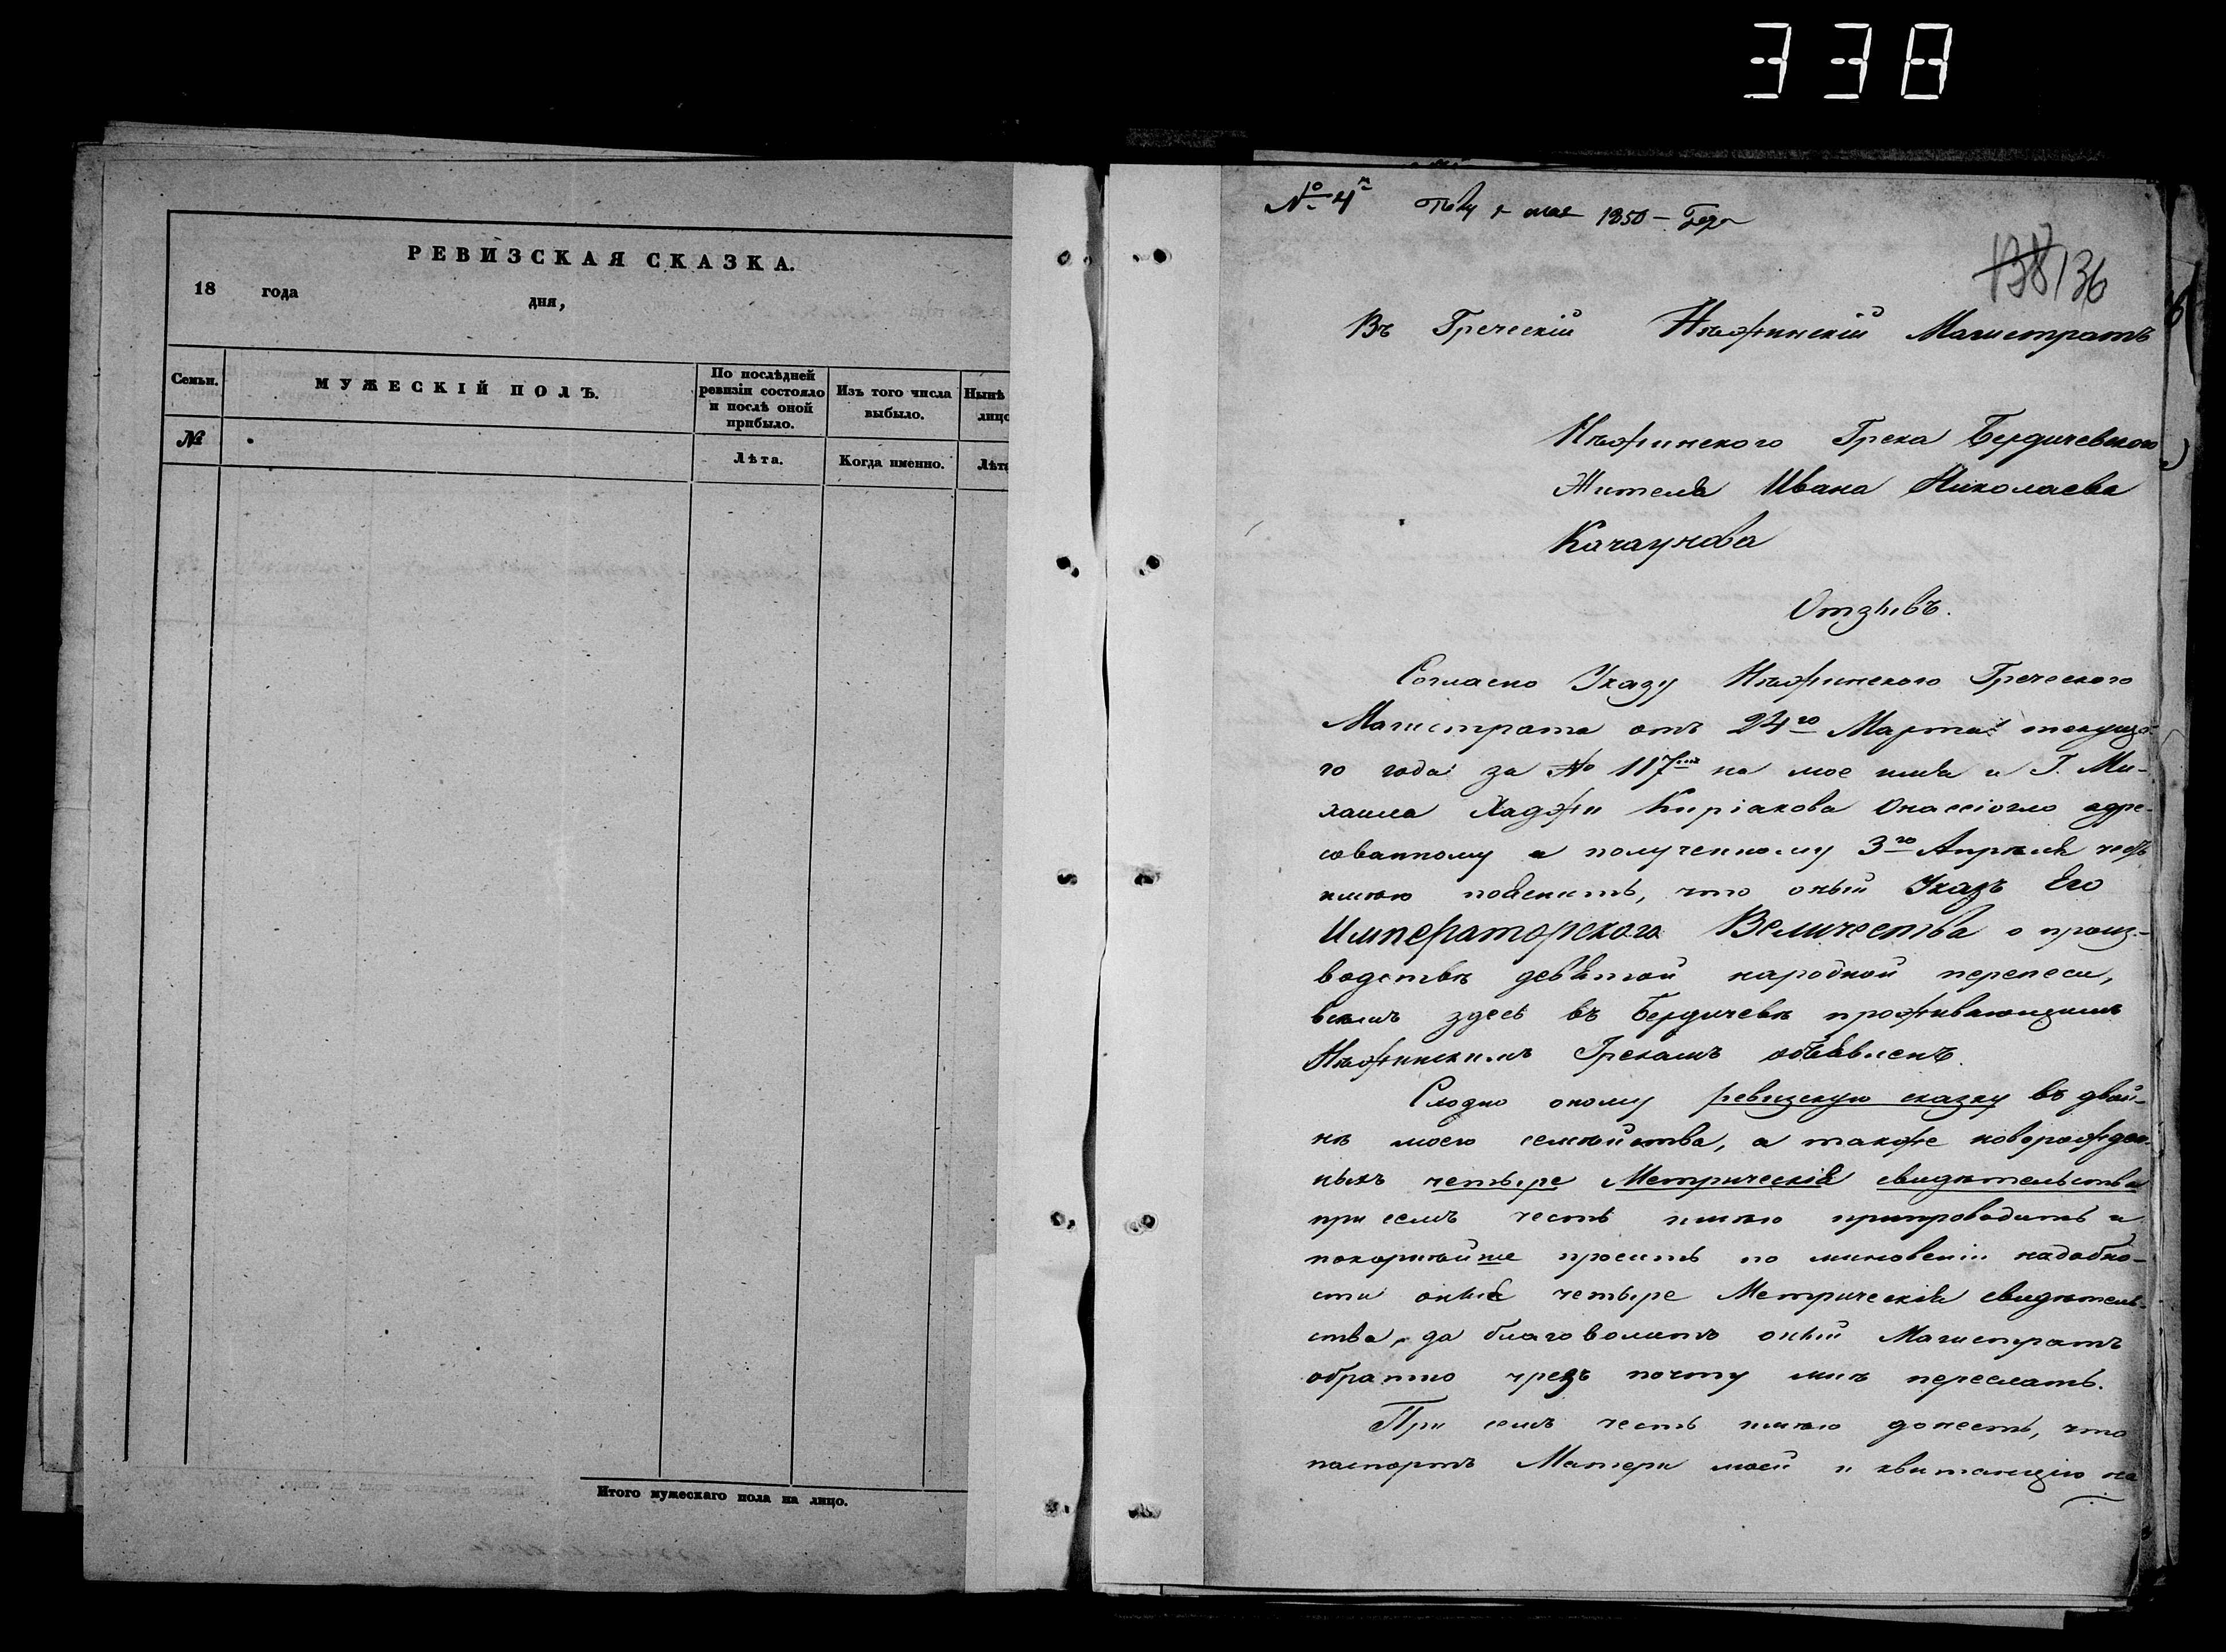 338
РЕВИЗСКАЯ СКАЗКА.
18 года дня,
Семьи.
МУЖЕСКІЙ ПОЛЪ.
По послѣдней
ревизіи состояло
и послѣ оной
прибыло.
Изъ того числа
выбыло.
Нынѣ
лицо
№
Лѣта.
Когда именно.
Лѣт
Итого мужескаго пола на лицо.
№ 4
мая 1850
138 136
Въ Греческій Нѣжинскій Магистратъ
Нѣжинского Грека Бердичевского
Жителя Ивана Николаева
Качаунова
Отзывъ.
Согласно Указу Нѣжинского Греческого
Магистрата отъ 24го Марта текуща-
го года за № 117 на мое имя и Г. Ми-
хаила Хаджи Киріакова Онассіогло адре-
сованному и полученному 3го Апрѣля честь
имѣю пояснить, что оный Указъ Его
Императорского Величества о произ-
водствѣ девятой народной переписи,
всѣмъ здесь въ Бердичевѣ проживающимъ
Нѣжинскимъ Грекамъ объявленъ.
оному ревизскую сказку въ двой-
нѣ моего семѣйства, а также новорожден-
ныхъ четыре Метрическія свидѣтельства
при семъ честь имѣю припроводить и
покорнѣйше просить по миновеніи надобно-
сти оныя четыре Метрическія свидѣтель-
ства, да благоволитъ оный Магистратъ
обратно чрезъ почту мнѣ переслать.
При семъ честь имѣю донесть, что
паспортъ Матери моей и квитанцію на